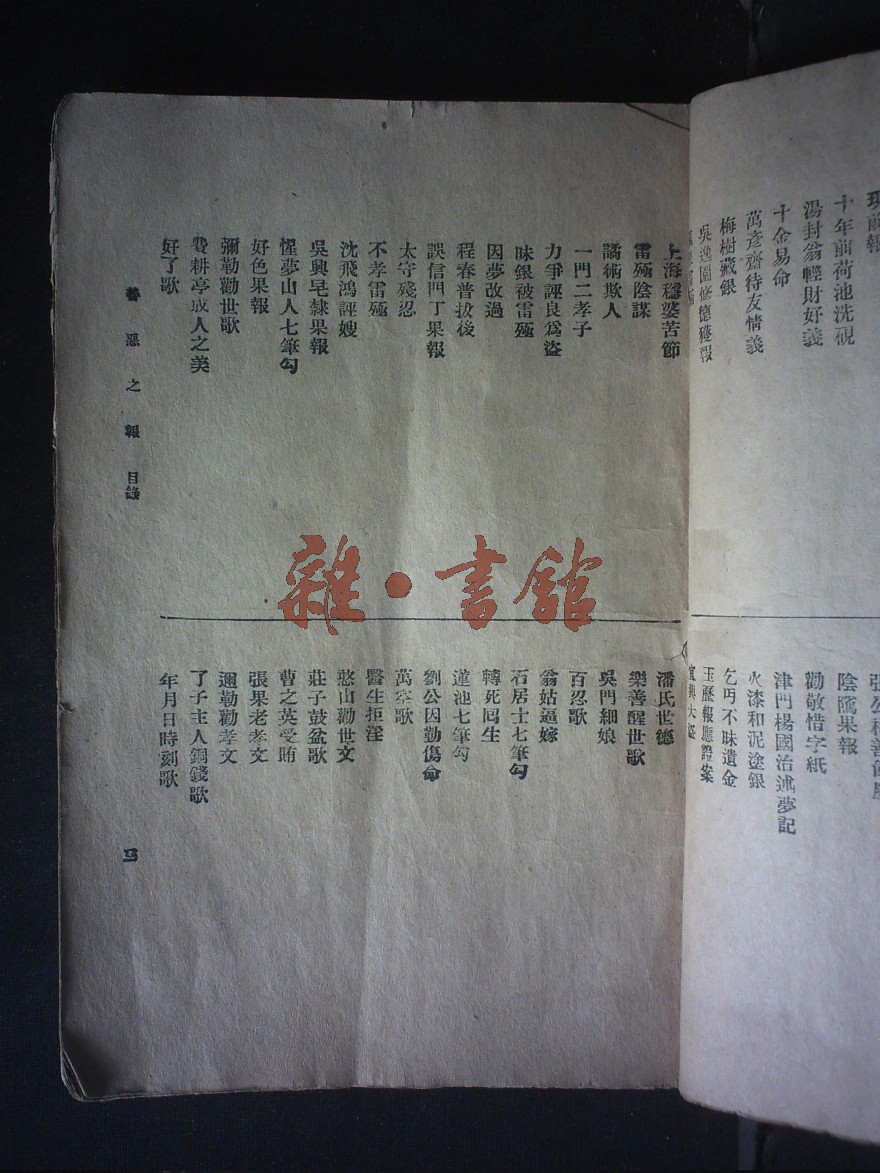 十年前荷池洗硯
湯封翁輕財好義
十金易命
萬彥齋待友情義
梅樹藏銀
吳逸園修德獲報
陰隲果報
勸敬惜字紙
津門楊國治述夢記
火漆和泥塗銀
乞丐不昧遺金
玉歷報應證案
宜興大盜
上海穩婆苦節
雷殛陰謀
譎術欺人
一門二孝子
力爭誣良爲盜
昧銀被雷殛
因夢改過
程春普拔後
誤信門丁果報
太守殘忍
不孝雷殛
沈飛鴻誣嫂
吳興皂隸果報
惺夢山人七筆勾
好色果報
彌勒勸世歌
費耕亭成人之美
好了歌
潘氏世德
樂善醒世歌
吳門細娘
百忍歌
翁姑逼嫁
石居士七筆勾
轉死囘生
蓮池七筆勾
劉公因勤傷命
萬空歌
醫生拒淫
憨山勸世文
莊子鼓盆歌
曹之英受賄
張果老孝文
彌勒勸孝文
了予主人銅錢歌
年月日時刻歌
善惡之報 目錄
四
雜·書館